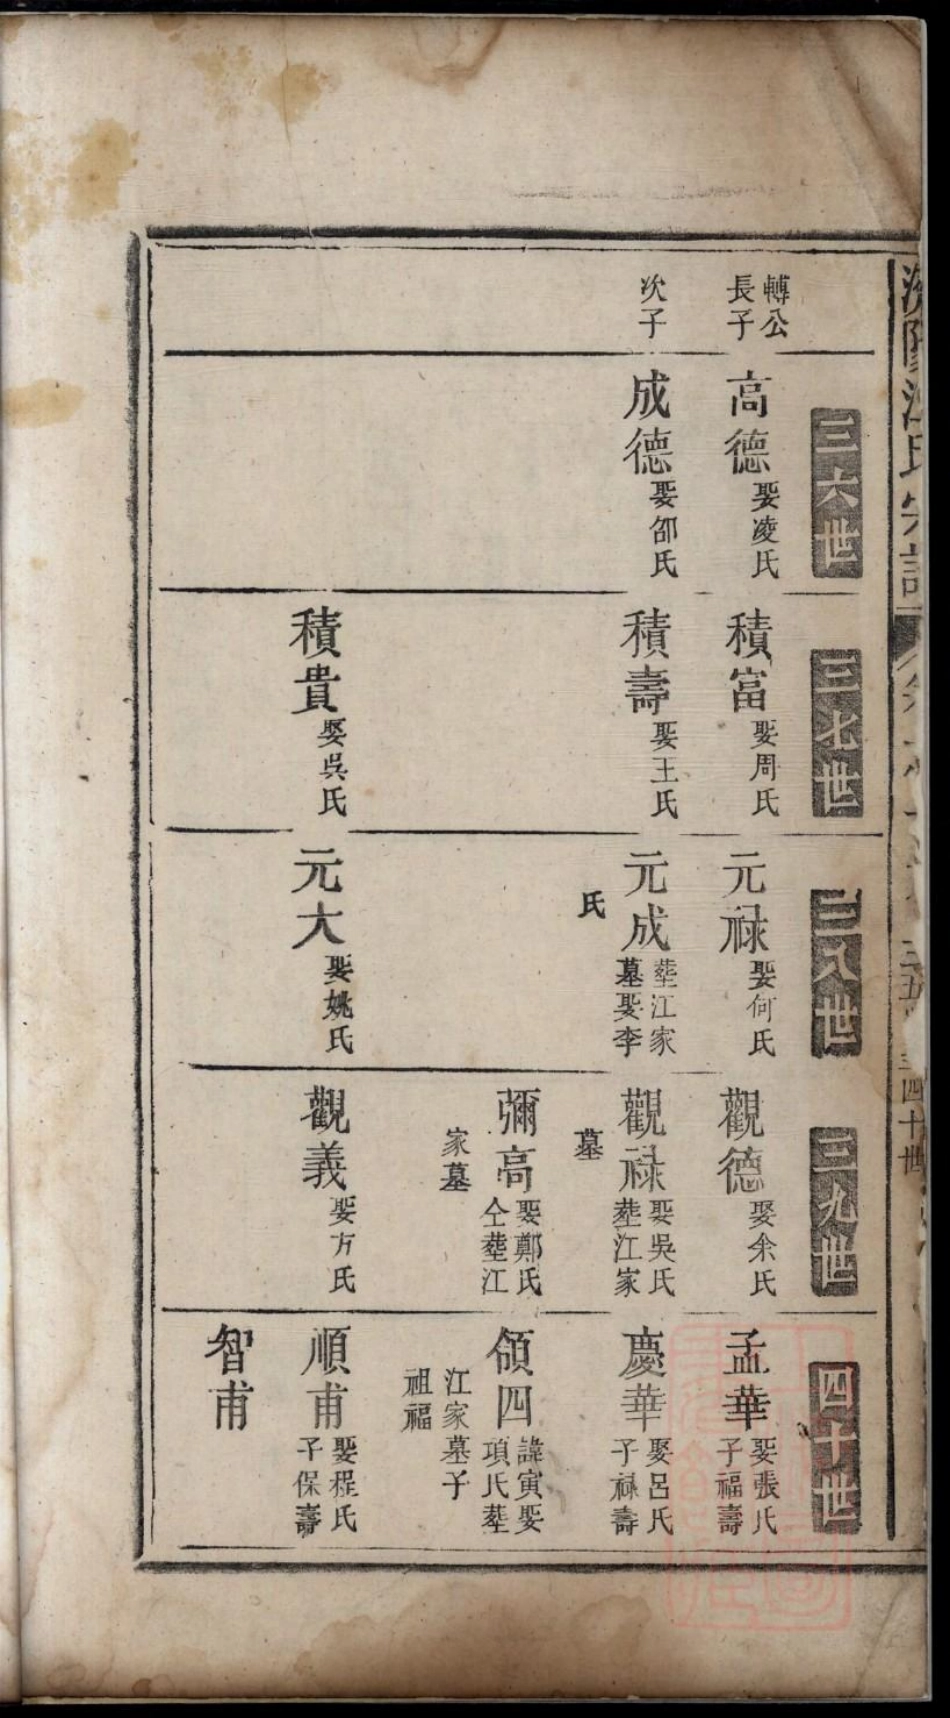 濟陽江氏宗譜
四十世
三六世
轉公
長子
高德
娶凌氏
次子
成德
娶邵氏
三七世
積富
娶周氏
積壽
娶王氏
積貴
娶吳氏
三八世
元祿
娶何氏
元成
塟江家
墓娶李
氏
元大
娶姚氏
三九世
觀德
娶余氏
觀祿
娶吳氏
塟江家
墓
彌高
娶鄭氏
仝塟江
家墓
觀義
娶方氏
四十世
孟華
娶張氏
子福壽
慶華
娶呂氏
子祿壽
領四
諱寅娶
項氏塟
江家墓子
祖福
順甫
娶程氏
子保壽
智甫